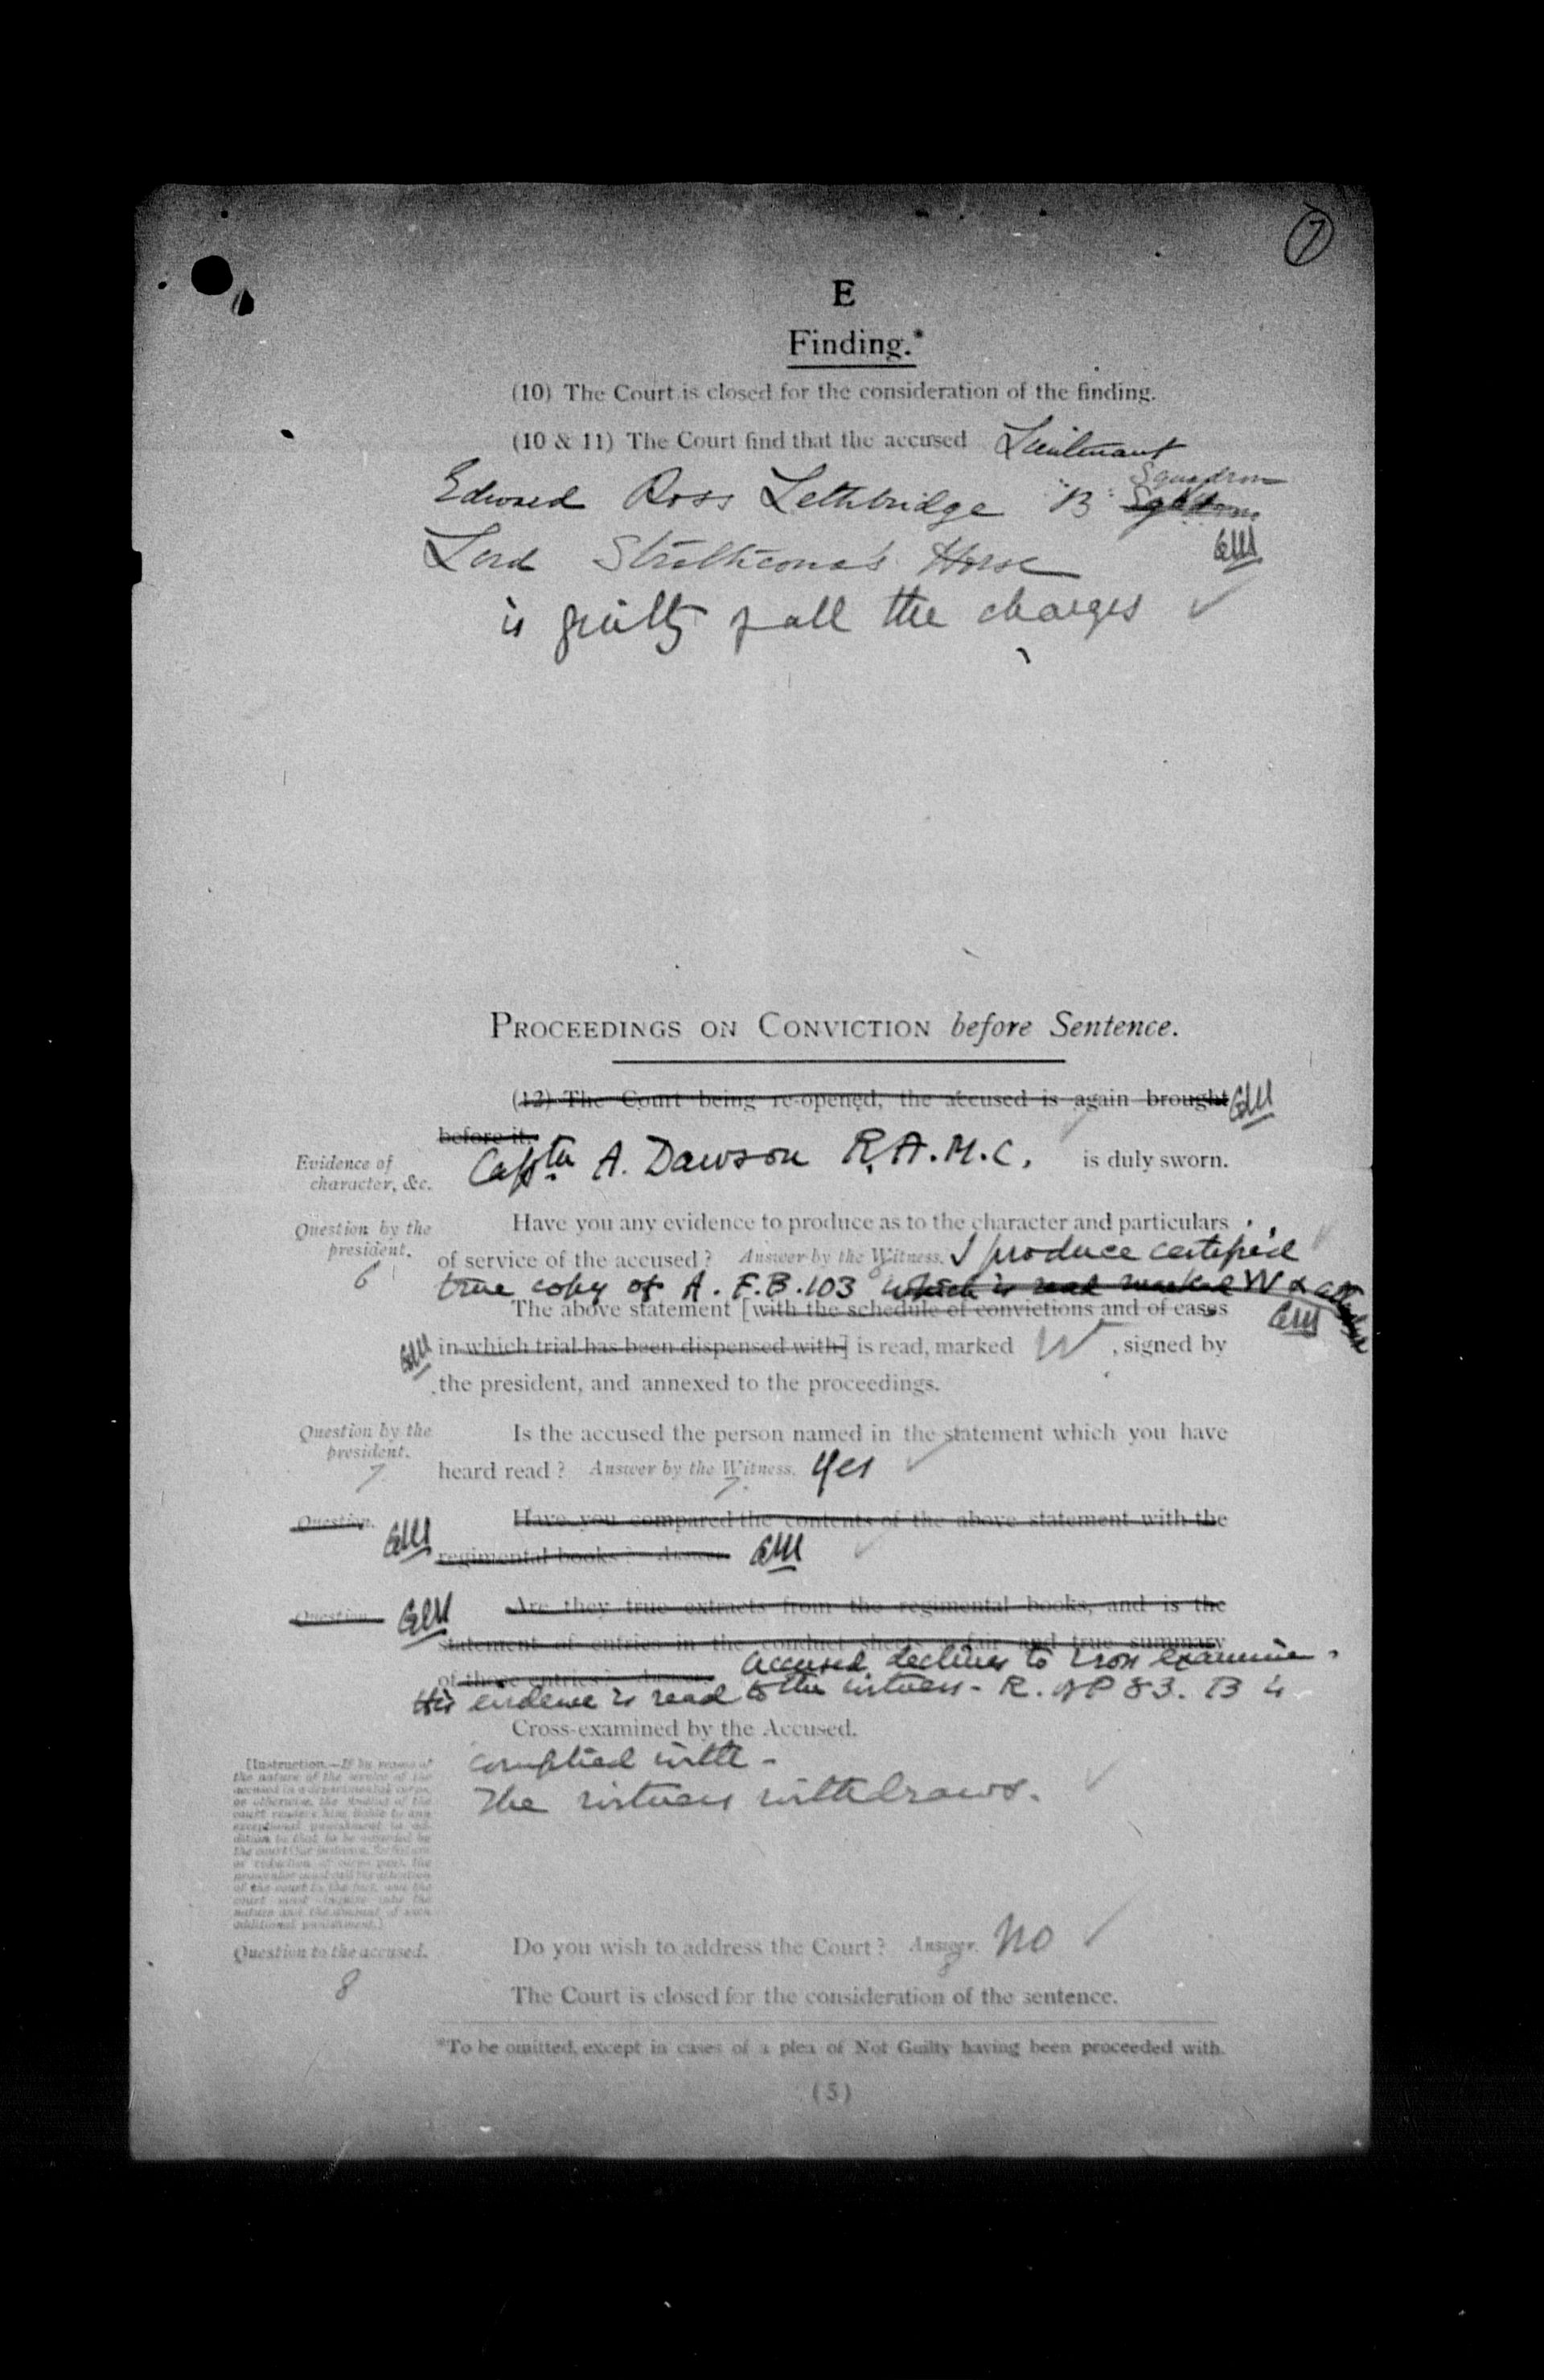 7
E
Finding.*
(10) The Court is closed for the consideration of the finding.
(10 & 11) The Court find that the accused Lieutenant
Squadron
Edward Ross Lethbridge "B"
Lord Strathcona's Horse
is guilty of all the charges
PROCEEDINGS ON CONVICTION before Sentence.
(12) The Court being re-opened, the accused is again brought
before it.
Evidence of
character, &c.
Captn A. Dawson R.A.M.C. is duly sworn.
Question by the
president.
6
Have you any evidence to produce as to the character and particulars
of service of the accused? Answer by the Witness. I produce certified
6
true copy of A.F.B.103 which is read marked W &
The above statement [with the schedule of convictions and of cases
in which trial has been dispensed with] is read, marked W, signed by
the president, and annexed to the proceedings.
Question by the
president.
7
Is the accused the person named in the statement which you have
heard read? Answer by the Witness. Yes
7.
Question.
Have you compared the contents of the above statement with the
regimental books? Answer.
Question.
Are they true extracts from the regimental books, and is the
statement of entries in the conduct sheets a fair and true summary
of those entries? Answer. Accused declines to cross examine.
His evidence is read to the witness - R. of P 83. B 4
Cross-examined by the Accused.
complied with -
The witness withdraws.
[Instruction.—If by reason of
the nature of the service of the
accused in a departmental corps,
or otherwise, the finding of the
court renders him liable to any
exceptional punishment in ad-
dition to that to be awarded by
the court
the
prosecutor must call the attention
of the court to the fact, and the
court must inquire into the
nature and the amount of such
additional punishment.]
Question to the accused.
8
Do you wish to address the Court? Answer. No
8
The Court is closed for the consideration of the sentence.
*To be omitted, except in cases of a plea of Not Guilty having been proceeded with.
(5)